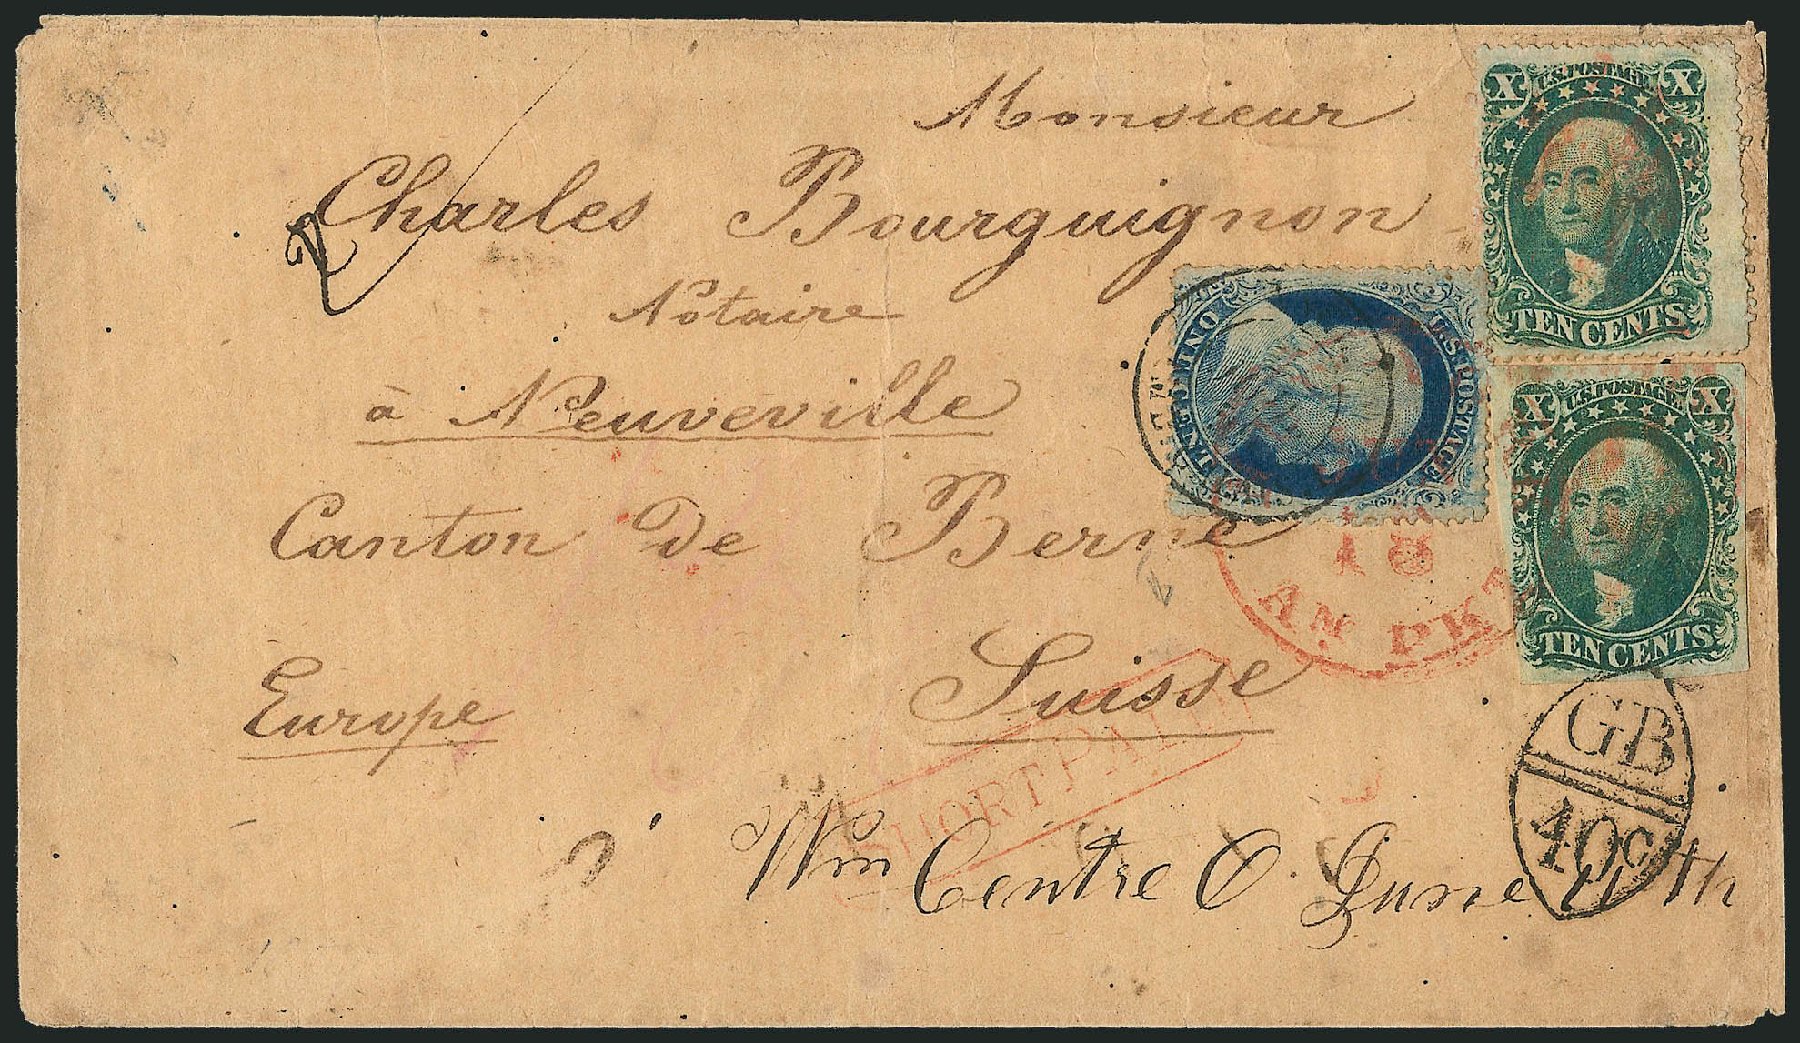 Monsieur
Charles Bourguignon
Notaire
à Neuveville
Canton de Berne
Suisse
Europe
X U.S. POSTAGE X
TEN CENTS
U.S. POSTAGE
ONE
X U.S. POSTAGE X
TEN CENTS
18
AM. PKT
SHORT PAID
GB
40c
Wm Centre O. June 11th
2